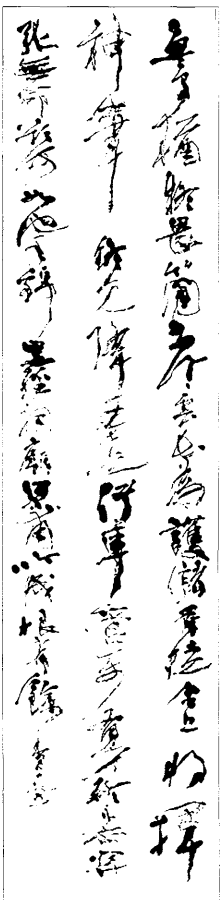 魚鳥猶疑畏簡書風雲長為護儲胥徒令上將揮
神筆終見降王走傳車管樂有才真不忝關
張無命欲何如他年錦里經祠廟梁甫吟成恨有餘